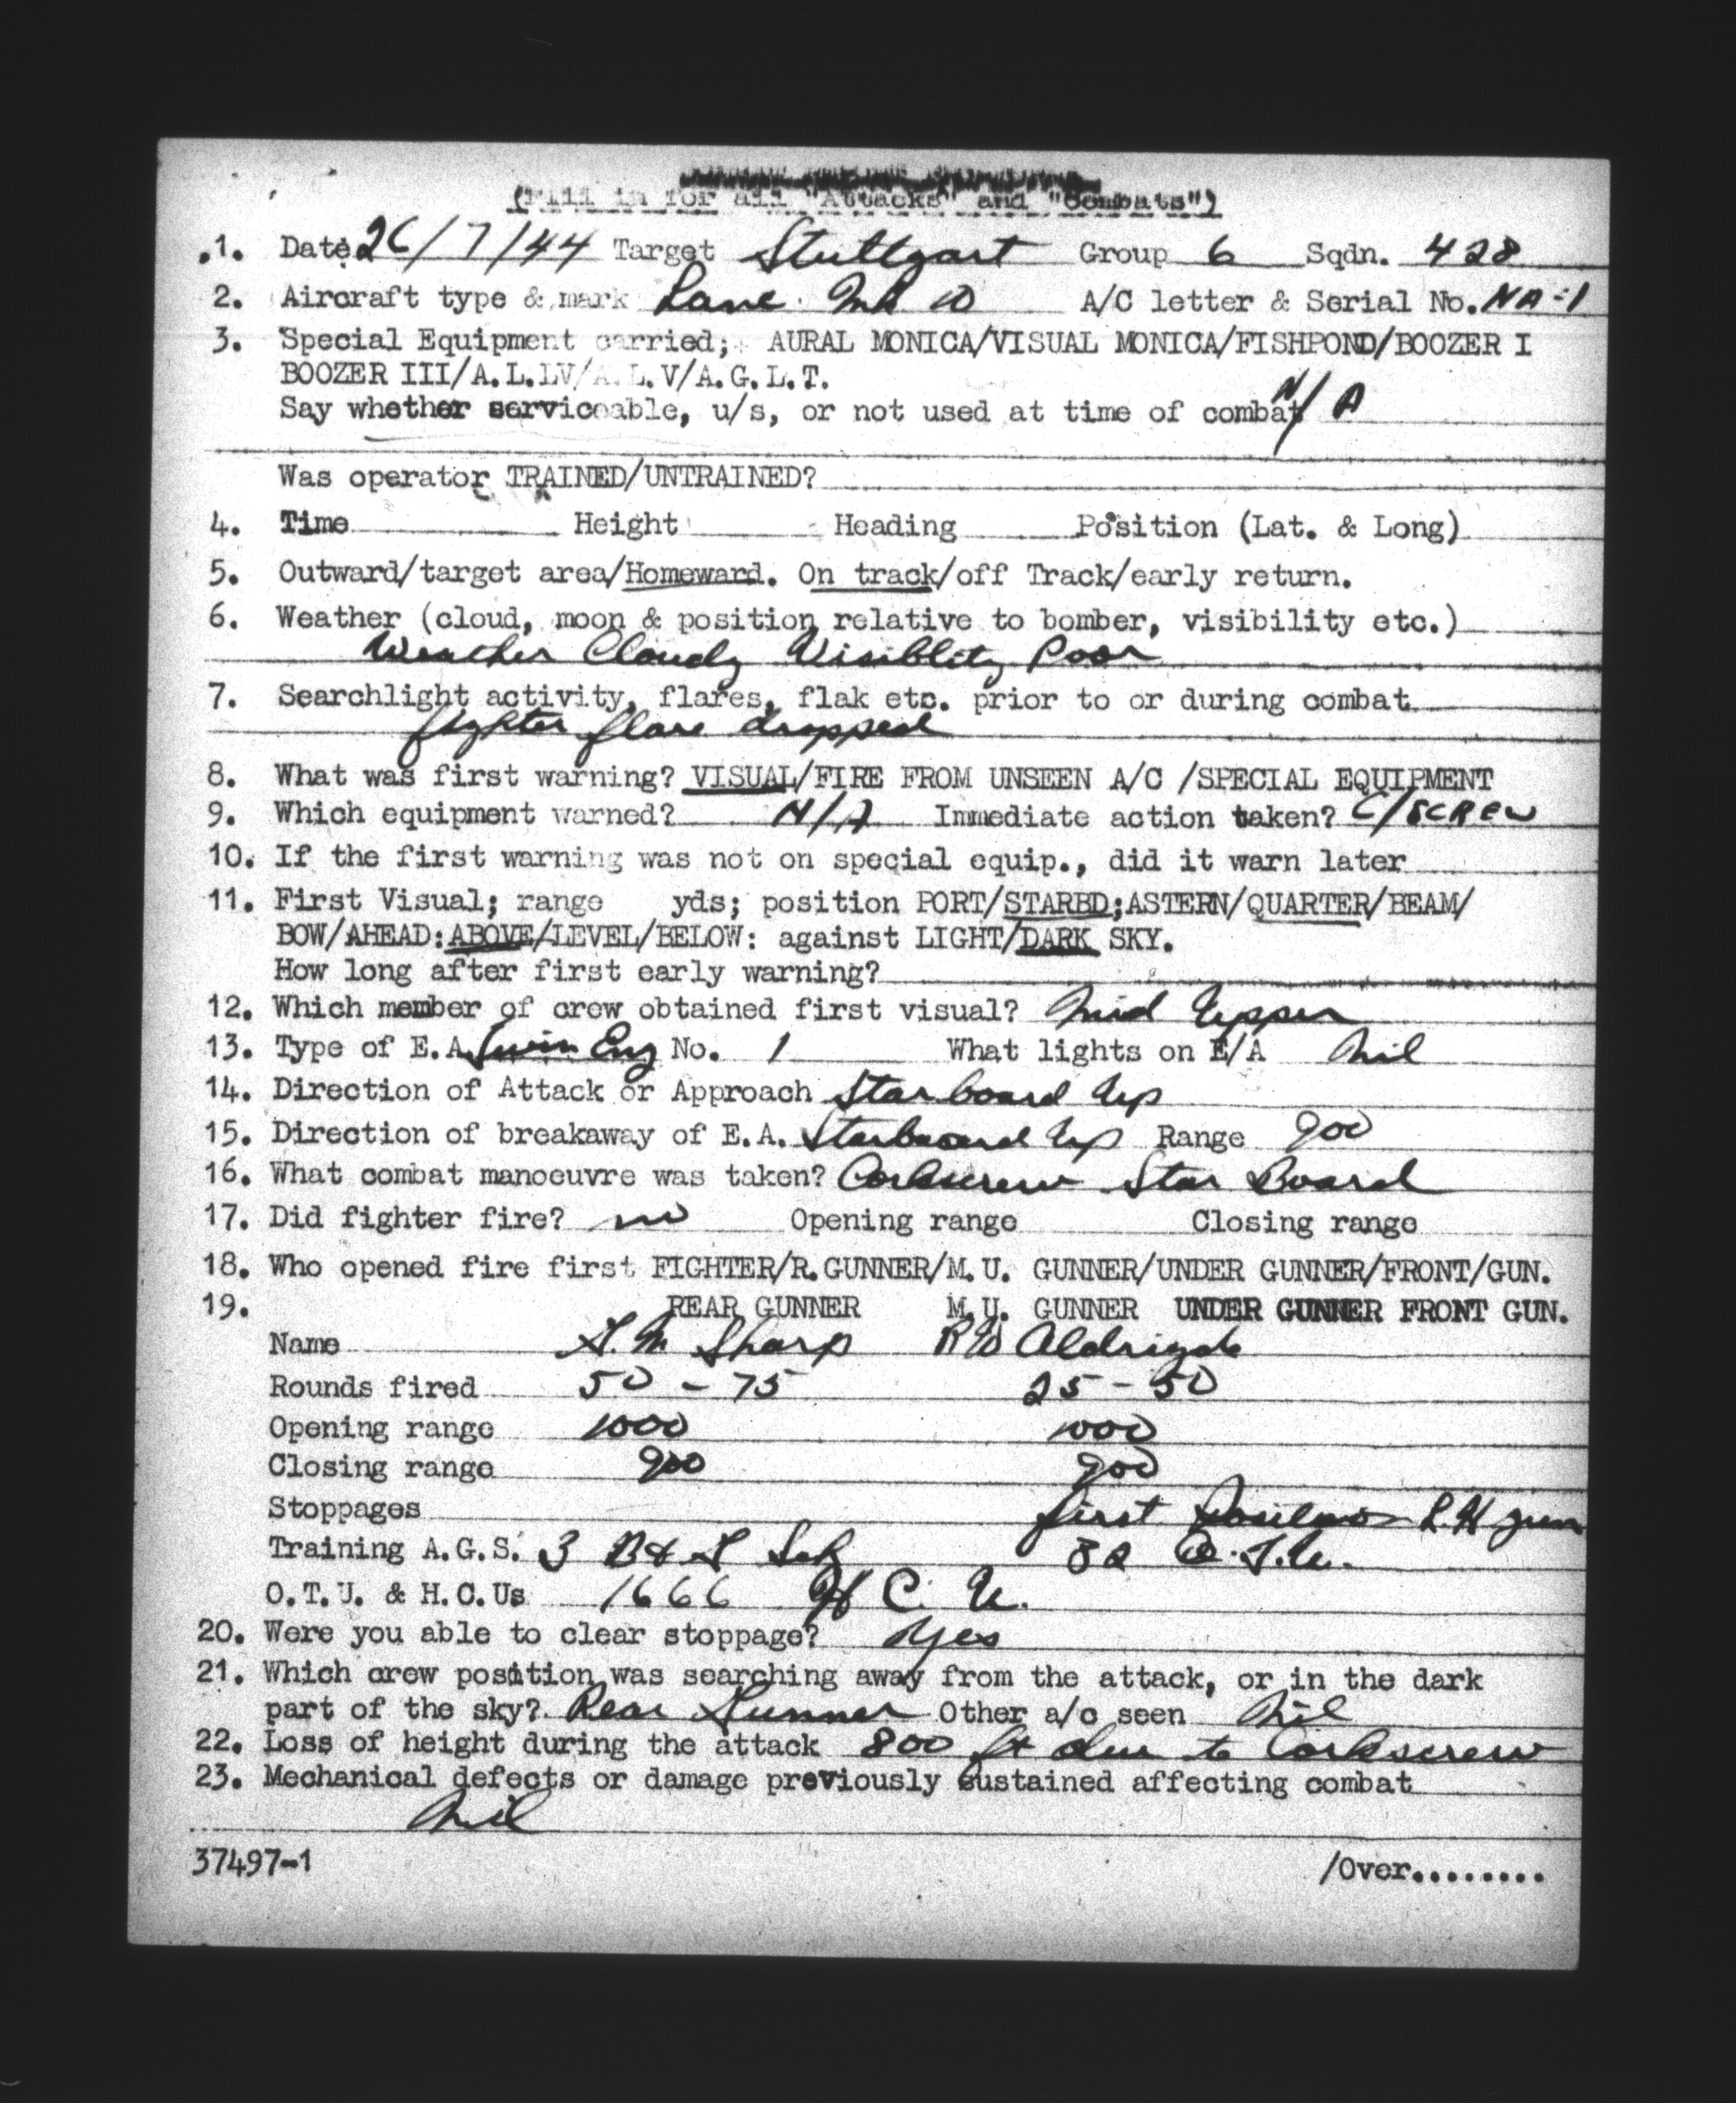 (Fill in for all "Attacks" and "Combats")
1. Date 26/7/44 Target Stuttgart Group 6 Sqdn. 428
2. Aircraft type & mark Lanc. Mk 10 A/C letter & Serial No. NA-1
3. Special Equipment carried; AURAL MONICA/VISUAL MONICA/FISHPOND/BOOZER I
BOOZER III/A.L.IV/A.L.V/A.G.L.T.
Say whether serviceable, u/s, or not used at time of combat N/A
Was operator TRAINED/UNTRAINED?
4. Time Height Heading Position (Lat. & Long)
5. Outward/target area/Homeward. On track/off Track/early return.
6. Weather (cloud, moon & position relative to bomber, visibility etc.)
Weather Cloudy Visiblity Poor
7. Searchlight activity, flares, flak etc. prior to or during combat
fighter flare dropped
8. What was first warning? VISUAL/FIRE FROM UNSEEN A/C /SPECIAL EQUIPMENT
9. Which equipment warned? N/A Immediate action taken? C/SCREW
10. If the first warning was not on special equip., did it warn later
11. First Visual; range yds; position PORT/STARBD;ASTERN/QUARTER/BEAM/
BOW/AHEAD:ABOVE/LEVEL/BELOW: against LIGHT/DARK SKY.
How long after first early warning?
12. Which member of crew obtained first visual? Mid Upper
13. Type of E.A. Twin Eng No. 1 What lights on E/A Nil
14. Direction of Attack or Approach Starboard Up
15. Direction of breakaway of E.A. Starboard Up Range 900
16. What combat manoeuvre was taken? Corkscrew Star Board
17. Did fighter fire? no Opening range Closing range
18. Who opened fire first FIGHTER/R.GUNNER/M.U. GUNNER/UNDER GUNNER/FRONT/GUN.
19. REAR GUNNER M.U. GUNNER UNDER GUNNER FRONT GUN.
Name Sharp Aldridge
Rounds fired 50 - 75 25 - 50
Opening range 1000 1000
Closing range 900 900
Stoppages first R.H gun
Training A.G.S. 3 B & G Sch 82 O.T.U.
O.T.U. & H.C.Us 1666 H C. U.
20. Were you able to clear stoppage? Yes
21. Which crew position was searching away from the attack, or in the dark
part of the sky? Rear Gunner Other a/c seen Nil
22. Loss of height during the attack 800 ft due to Corkscrew
23. Mechanical defects or damage previously sustained affecting combat
Nil
37497-1 /Over........